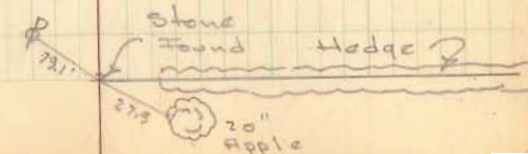 Stone
Found
Hedge
79.1'
27.9
20"
Apple